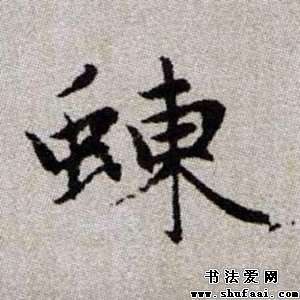 蝀
书法爱网
www.shufaai.com